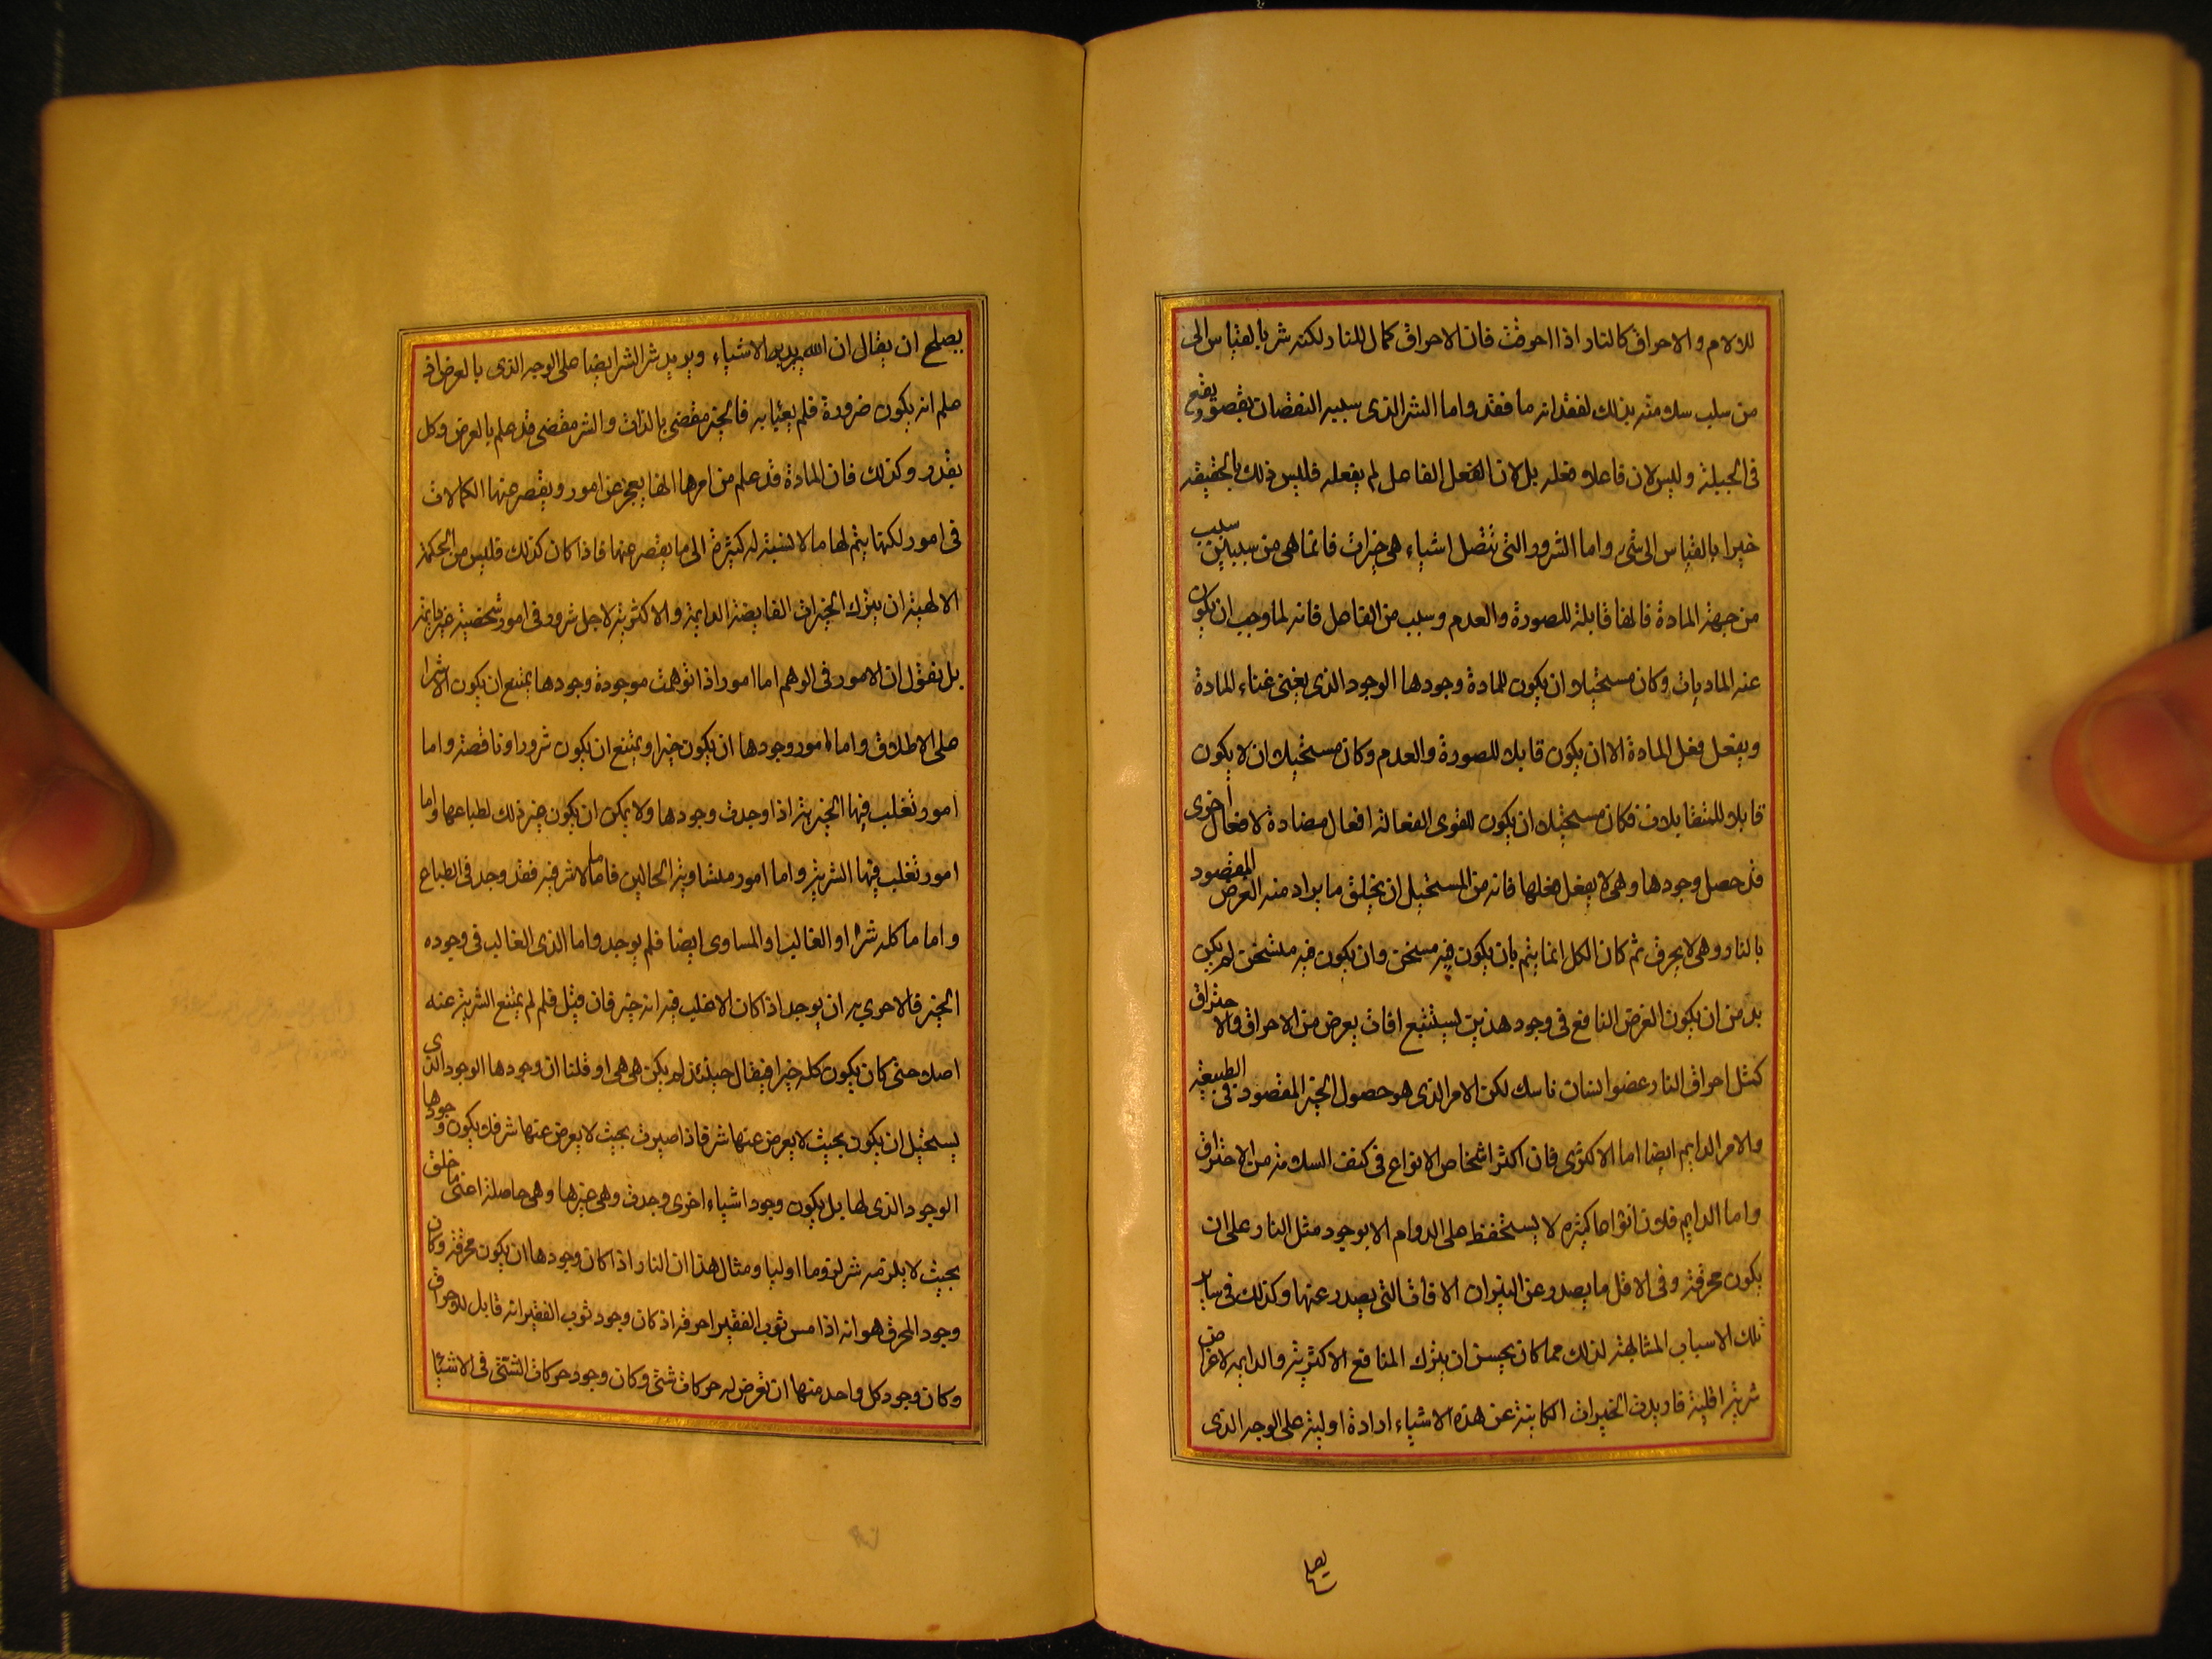 للالام والاحراق كالنار اذا احرقت فان الاحراق كمال للنار لكنه شر بالقياس الى
من سلب سلامته بذلك لفقدانه ما فقد واما الشر الذى سببه النقصان بقصور يقع
فى الجبلة وليس لان فاعلا فعله بل لان الفعل الفاعل لم يفعله فليس ذلك بالحقيقة
خيرا بالقياس الى شىء واما الشرور التى تتصل اشياء هى خيرات فانما هى من سببين سبب
من جهة المادة فانها قابلة للصورة والعدم وسبب من الفاعل فانه لما وجب ان يكون
عنه الماديات وكان مستحيلا ان يكون للمادة وجودها الوجود الذى يغنى غناء المادة
ويفعل فعل المادة الا ان يكون قابلا للصورة والعدم وكان مستحيلا ان لا يكون
قابلا للمتقابلات فكان مستحيلا ان يكون للقوى الفعالة افعال مضادة لافعال اخرى
قد حصل وجودها وهى لا يفعل فعلها فانه من المستحيل ان يخلق ما يراد منه الغرض المقصود
بالنار وهى لا يحرق ثم كان الكل انما يتم بان يكون فيه مسخن وان يكون فيه متسخن لم يكن
بد من ان يكون الغرض النافع فى وجود هذين يستتبع افات يعرض من الاحراق والاحتراق
كمثل احراق النار عضو انسان ناسك لكن الامر الذى هو حصول الخير المقصود فى الطبيعة
والامر الدايم ايضا اما الاكثرى فان اكثر اشخاص الانواع فى كنف السلامة من الاحتراق
واما الدايم فلان انواعا كثيره لا يستحفظ على الدوام الا بوجود مثل النار على ان
يكون محرقة وفى الاقل ما يصدر عن النيران الافات التى يصدر عنها وكذلك فى ساير
تلك الاسباب المشابهة لذلك فما كان يحسن ان يترك المنافع الاكثرية والدايمه لاعراض
شرية اقلية فاريدت الخيرات الكاينة عن هذه الاشياء ارادة اولية على الوجه الذى
يصلح
يصلح ان يقال ان الله يريد الاشياء ويريد شر الشر ايضا على الوجه الذى بالعرض اذ
علم انه يكون ضرورة فلم يعبابه فالخير مقضى بالذات والشر مقضى قد علم بالعرض وكل
بقدر وكذلك فان المادة قد علم من امرها انها يعجز عن امور ويقصر عنها الكمالات
فى امور لكنها يتم لها ما لا نسبة له كثيرة الى ما يقصر عنها فاذا كان كذلك فليس من الحكمة
الالهية ان يترك الخيرات الفايضة الدايمة والاكثرية لاجل شرور فى امور شخصية غير دايمة
بل نقول ان الامور فى الوهم اما امور اذا توهمت موجودة وجودها يمتنع ان يكون الا شرا
على الاطلاق واما امور وجودها ان يكون خيرا ويمتنع ان يكون شرورا وناقصة واما
امور تغلب فيها الخيرية اذا وجدت وجودها ولا يمكن ان يكون غير ذلك لطباعها واما
امور تغلب فيها الشرية واما امور متساوية الحالين فاما ما لا شر فيه فقد وجد فى الطباع
واما ما كله شر او الغالب او المساوى ايضا فلم يوجد واما الذى الغالب فى وجوده
الخير فالاحرى به ان يوجد اذا كان الاغلب فيه انه خير فان قيل فلم لم يمتنع الشرية عنه
اصلا حتى كان يكون كله خيرا فيقال حينئذ لم يكن هى هى او قلنا ان وجودها الوجود الذى
يستحيل ان يكون بحيث لا يعرض عنها شر فاذا صيرت بحيث لا يعرض عنها شر فلا يكون وجودها
الوجود الذى لها بل يكون وجود اشياء اخرى وجدت وهى غيرها وهى حاصلة اعنى ما خلق
بحيث لا يلزمه شر لزوما اوليا ومثال هذا ان النار اذا كان وجودها ان يكون محرقة وكان
وجود المحرق هو انه اذا مس ثوب الفقير احرقه اذ كان وجود ثوب الفقير انه قابل للاحراق
وكان وجود كل واحد منها ان تعرض له حركات شتى وكان وجود حركات الشتى فى الاشياء